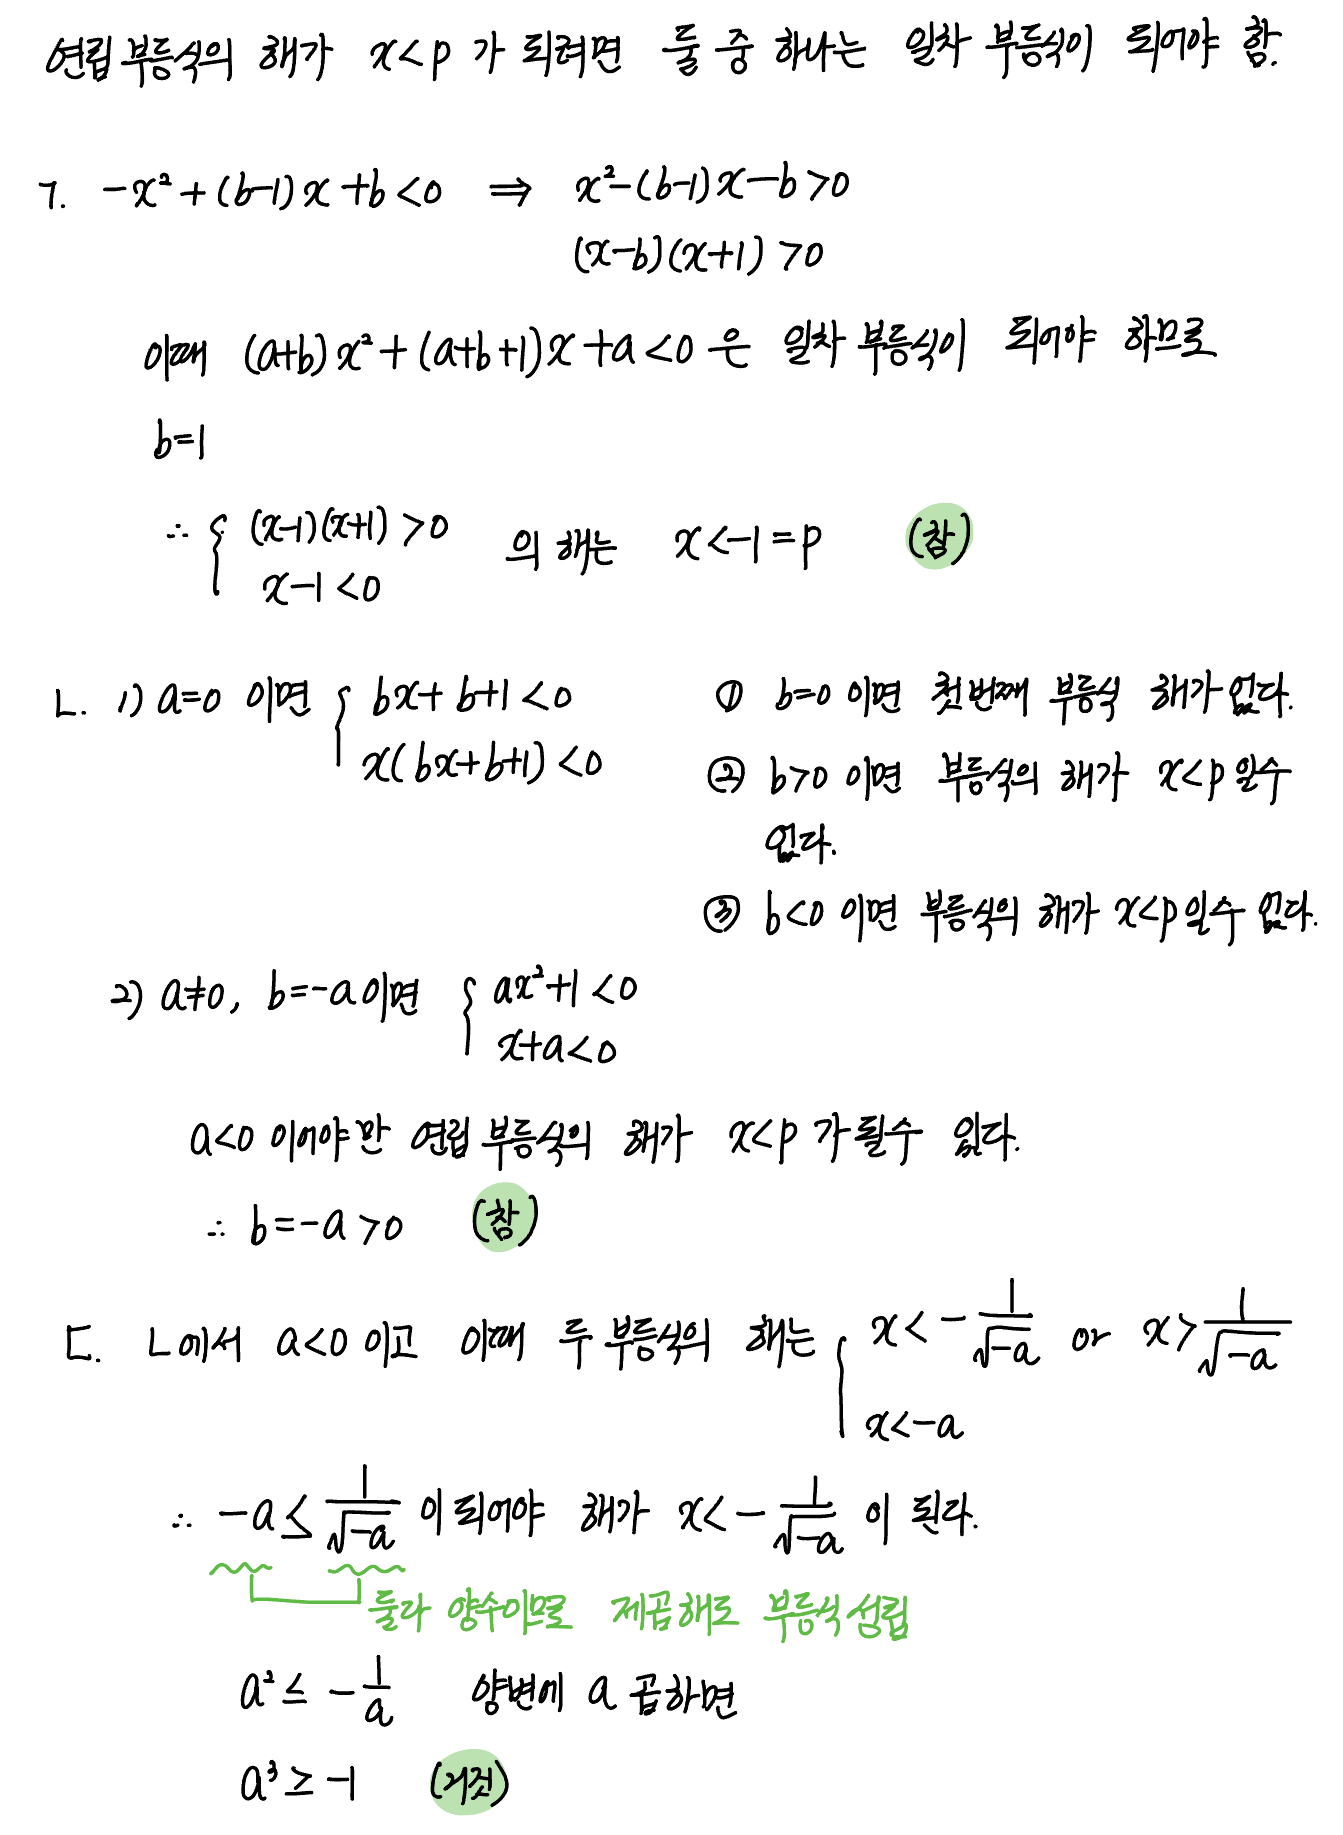 연립부등식의 해가 x<p 가 되려면 둘 중 하나는 일차 부등식이 되어야 함.
ㄱ. -x²+(b-1)x+b<0 ⇒ x²-(b-1)x-b>0
(x-b)(x+1)>0
이때 (a+b)x²+(a+b+1)x+a<0 은 일차 부등식이 되어야 하므로
b=1
∴ { (x-1)(x+1)>0 의 해는 x<-1=p (참)
x-1<0
ㄴ. 1) a=0 이면 { bx+b+1<0 ① b=0 이면 첫번째 부등식 해가 없다.
x(bx+b+1)<0 ② b>0 이면 부등식의 해가 x<p 일수
없다.
③ b<0 이면 부등식의 해가 x<p 일수 없다.
2) a≠0, b=-a 이면 { ax²+1<0
x+a<0
a<0 이어야만 연립부등식의 해가 x<p 가 될수 있다.
∴ b=-a>0 (참)
ㄷ. ㄴ에서 a<0 이고 이때 두 부등식의 해는 { x<-1/√-a or x>1/√-a
x<-a
∴ -a≤1/√-a 이 되어야 해가 x<-1/√-a 이 된다.
둘다 양수이므로 제곱해도 부등식 성립
a²≤-1/a 양변에 a 곱하면
a³≥-1 (거짓)